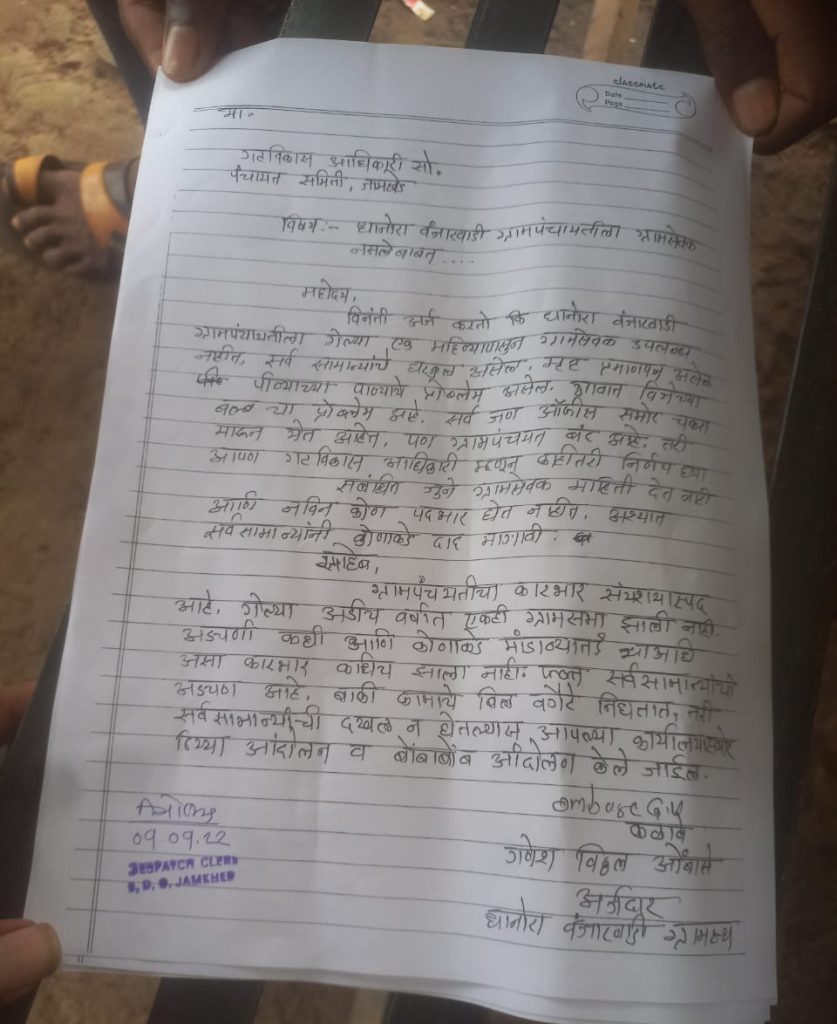 classmate
Date
Page
मा.
गटविकास आधिकारी सो.
पंचायत समिती, जामखेड
विषय:- धानोरा वंजारवाडी ग्रामपंचायतीला ग्रामसेवक
नसलेबाबत ....
महोदय,
विनंती अर्ज करतो कि धानोरा वंजारवाडी
ग्रामपंचायतीला गेल्या एक महिन्यापासुन ग्रामसेवक उपलब्ध
नाहीत, सर्व सामान्यांचे घरकुल असेल, प्रमाणपत्र असेल
पिण्याच्या पाण्याचे प्रोब्लेम असेल. गावात विजेच्या
बल्ब चा प्रोब्लेम आहे. सर्व जण ऑफीस समोर चकरा
मारून येत आहेत, पण ग्रामपंचयत बंद आहे. तरी
आपण गटविकास आधिकारी म्हणून काहीतरी निर्णय घ्या.
संबंधित जुने ग्रामसेवक माहिती देत नाही
आणि नविन कोण पदभार घेत नाहीत. अश्यात
सर्वसामान्यांनी कोणाकडे दाद मागावी.
साहेब,
ग्रामपंचयतीचा कारभार संशयास्पद
आहे. गेल्या अडीच वर्षात एकही ग्रामसभा झाली नाही.
अडचणी कधी आणि कोणाकडं मांडाव्यात याआधि
असा कारभार कधिच झाला नाही. फक्त सर्वसामान्यांची
अडचण आहे. बाकी कामाचे बिल वगैरे निघतात, तरी
सर्वसामान्यांची दखल न घेतल्यास आपल्या कार्यालयासमोर
ठिय्या आंदोलन व बोंबाबोंब आंदोलन केले जाईल.
Ombase G.V
कळावे
गणेश विठ्ठल ओंबासे
अर्जदार
धानोरा वंजारवाडी ग्रामस्थ
09.09.22
DESPATCH CLERK
B. D. O. JAMKHED